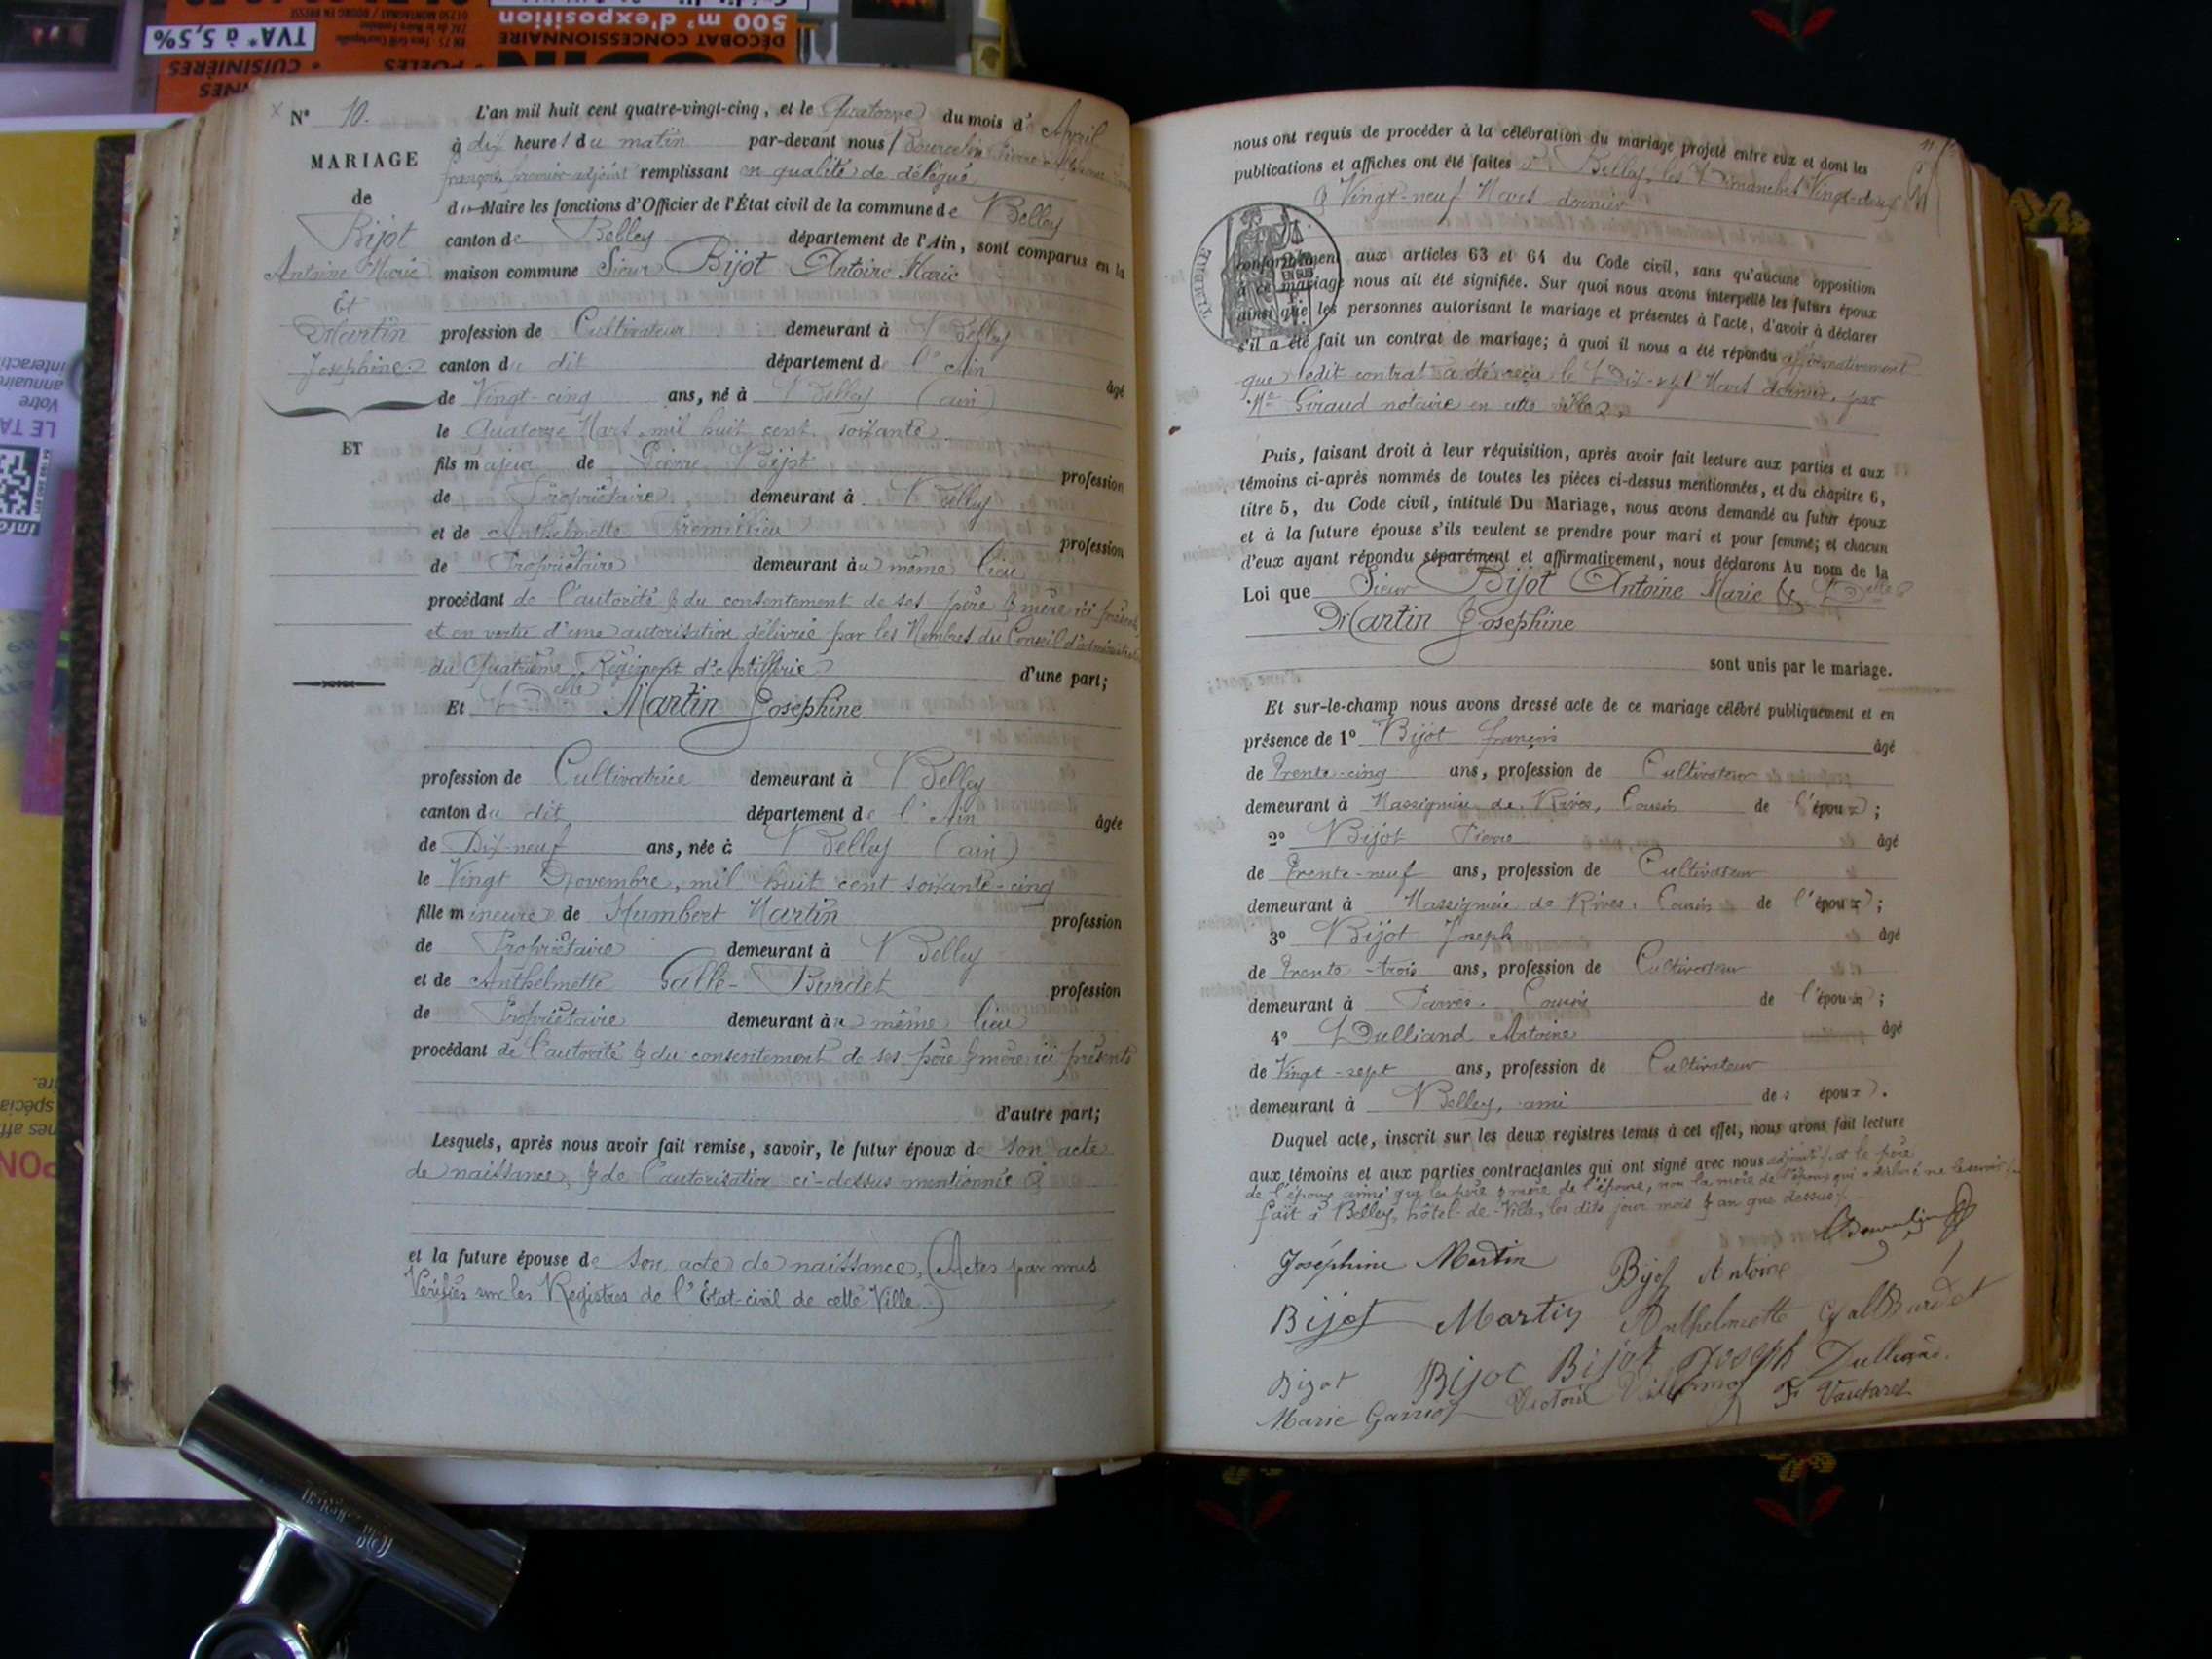 N° 10.
MARIAGE
de
Bijot
Antoine Marie
Et
Martin
Josephine
ET
L'an mil huit cent quatre-vingt-cinq, et le Quatorze du mois d' Avril
à dix heures du matin par-devant nous
françois premier adjoint remplissant en qualité de délégué
du Maire les fonctions d'Officier de l'État civil de la commune de Belley
canton de Belley département de l'Ain, sont comparus en la
maison commune Sieur Bijot Antoine Marie
profession de Cultivateur demeurant à Belley
canton du dit département de l'Ain âgé
de Vingt-cinq ans, né à Belley (ain)
le Quatorze Mars, mil huit cent soixante
fils majeur de Pierre Bijot profession
de Propriétaire demeurant à Belley
et de Anthelmette profession
de Propriétaire demeurant au même lieu
procédant de l'autorité & du consentement de ses père & mère ici présents
et en vertu d'une autorisation délivrée par les Membres du Conseil d'administration
du Quatrième Régiment d'artillerie d'une part;
Et Delle Martin Josephine
profession de Cultivatrice demeurant à Belley
canton du dit département de l'Ain âgée
de Dix-neuf ans, née à Belley (ain)
le Vingt Novembre, mil huit cent soixante-cinq
fille mineure de Humbert Martin profession
de Propriétaire demeurant à Belley
et de Anthelmette Galle-Burdet profession
de Propriétaire demeurant au même lieu
procédant de l'autorité & du consentement de ses père & mère ici présents
d'autre part;
Lesquels, après nous avoir fait remise, savoir, le futur époux de son acte
de naissance, & de l'autorisation ci-dessus mentionnée
et la future épouse de son acte de naissance, (Actes par nous
Vérifiés sur les Registres de l'Etat-civil de cette Ville.)
nous ont requis de procéder à la célébration du mariage projeté entre eux et dont les
publications et affiches ont été faites à Belley, les Dimanches Vingt-deux
& Vingt-neuf Mars dernier
TIMBRE
conformément aux articles 63 et 64 du Code civil, sans qu'aucune opposition
à ce mariage nous ait été signifiée. Sur quoi nous avons interpellé les futurs époux
ainsi que les personnes autorisant le mariage et présentes à l'acte, d'avoir à déclarer
s'il a été fait un contrat de mariage; à quoi il nous a été répondu affirmativement
que ledit contrat a été reçu le Dix-sept Mars dernier, par
Me Giraud notaire en cette ville
Puis, faisant droit à leur réquisition, après avoir fait lecture aux parties et aux
témoins ci-après nommés de toutes les pièces ci-dessus mentionnées, et du chapitre 6,
titre 5, du Code civil, intitulé Du Mariage, nous avons demandé au futur époux
et à la future épouse s'ils veulent se prendre pour mari et pour femme; et chacun
d'eux ayant répondu séparément et affirmativement, nous déclarons Au nom de la
Loi que Sieur Bijot Antoine Marie & Delle
Martin Josephine
sont unis par le mariage.
Et sur-le-champ nous avons dressé acte de ce mariage célébré publiquement et en
présence de 1° Bijot françois âgé
de trente-cinq ans, profession de Cultivateur
demeurant à Massignieu de Rives, Cousin de l'époux;
2° Bijot Pierre âgé
de trente-neuf ans, profession de Cultivateur
demeurant à Massignieu de Rives, Cousin de l'époux;
3° Bijot Joseph âgé
de trente-trois ans, profession de Cultivateur
demeurant à Parves. Cousin de l'époux;
4° Dulliand Antoine âgé
de Vingt-sept ans, profession de Cultivateur
demeurant à Belley, ami des époux.
Duquel acte, inscrit sur les deux registres tenus à cet effet, nous avons fait lecture
aux témoins et aux parties contractantes qui ont signé avec nous adjoint, et le père
de l'époux ainsi que les père & mère de l'épouse, non la mère de l'époux qui a déclaré ne le savoir
fait à Belley, hôtel-de-Ville, les dits jour mois & an que dessus
Joséphine Martin Bijot Antoine
Bijot Martin Anthelmette Galburdet
Bijot Bijot Bijot Joseph Dulliand
Marie Garriot Victorine F Vautaret
500 m² d'exposition
DÉCOBAT CONCESSIONNAIRE
TVA* à 5,5%
CUISINIÈRES
POÊLES
01250 MONTAGNAT / BOURG EN BRESSE